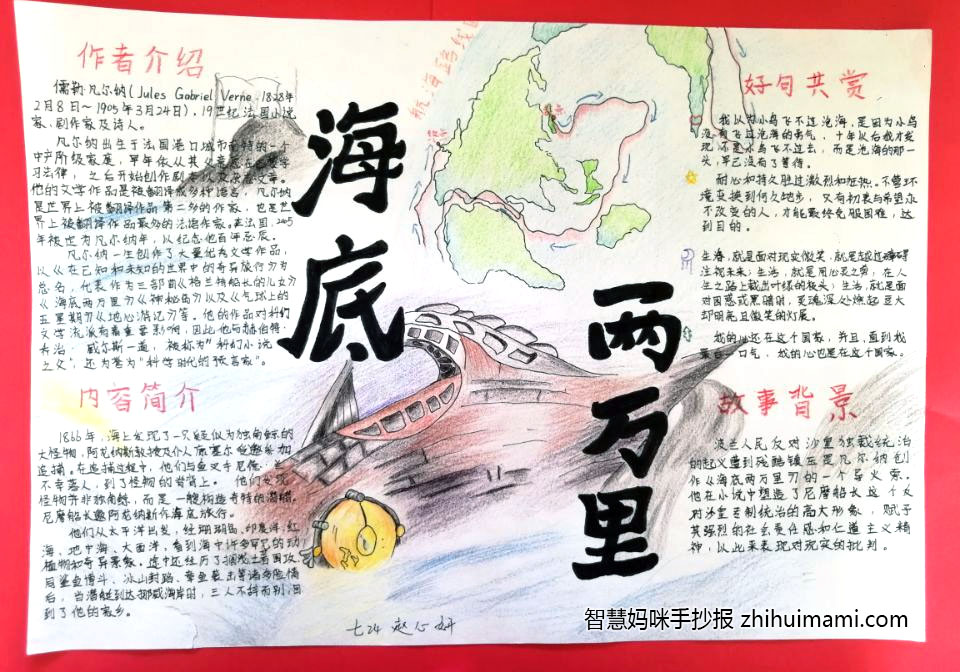 作者介绍
儒勒·凡尔纳(Jules Gabriel Verne,1828年
2月8日~1905年3月24日),19世纪法国小说
家、剧作家及诗人。
凡尔纳出生于法国港口城市南特的一个
中产阶级家庭,早年依从其父
习法律,之后开始创作剧本以及杂志文章。
他的文学作品是被翻译成多种语言,凡尔纳
是世界上被翻译作品第二多的作家,也是世
界上被翻译作品最多的法语作家。在法国,2005
年被定为凡尔纳年,以纪念他百年忌辰。
凡尔纳一生创作了大量优秀文学作品,
以《在已知和未知的世界中的奇异旅行》为
总名,代表作为三部曲《格兰特船长的儿女》
《海底两万里》《神秘岛》以及《气球上的
五星期》《地心游记》等。他的作品对科幻
文学流派有着重要影响,因此他与赫伯特·
乔治·威尔斯一道,被称为“科幻小说
之父”,还为誉为“科学时代的预言家”。
内容简介
1866年,海上发现了一只疑似为独角鲸的
大怪物,阿龙纳斯教授及仆人康塞尔受邀参加
追捕。在追捕过程中,他们与鱼叉手尼德·兰
不幸落入,到了怪物的脊背上。他们发现
怪物并非独角鲸,而是一艘构造奇特的潜艇。
尼摩船长邀阿龙纳斯作海底旅行。
他们从太平洋出发,经珊瑚岛、印度洋、红
海、地中海、大西洋,看到海中许多罕见的动
植物和奇异景象。途中还经历了搁浅、土著围攻、
同鲨鱼搏斗、冰山封路、章鱼袭击等诸多险情
后,当潜艇到达挪威海岸时,三人不辞而别,回
到了他的家乡。
海底
两万里
航海路线
好句共赏
我以为小鸟飞不过沧海,是因为小鸟
没有飞过沧海的勇气,十年以后我才发
现,不是小鸟飞不过去,而是沧海的那一
头,早已没有了等待。
耐心和持久胜过激烈和狂热。不管环
境变换到何久地步,又有初衷与希望永
不改变的人,才能最终克服困难,达
到目的。
生活,就是面对现实微笑,就是越过障碍
注视未来;生活,就是用心灵之剪,在人
生之路上裁出叶绿的枝头;生活,就是面
对困惑或黑暗时,灵魂深处燃起豆大
却明亮且微笑的灯展。
我的心还在这个国家,并且,直到我
最后一口气,我的心也是在这个国家。
故事背景
波兰人民反对沙里独裁统治
的起义遭到残酷镇压是凡尔纳创
作《海底两万里》的一个导火索。
他在小说中塑造了尼摩船长这个反
对沙里专制统治的高大形象,赋予
其强烈的社会责任感和仁道主义精
神,以此来表现对现实的批判。
七24 赵心妍
智慧妈咪手抄报 zhihuimami.com